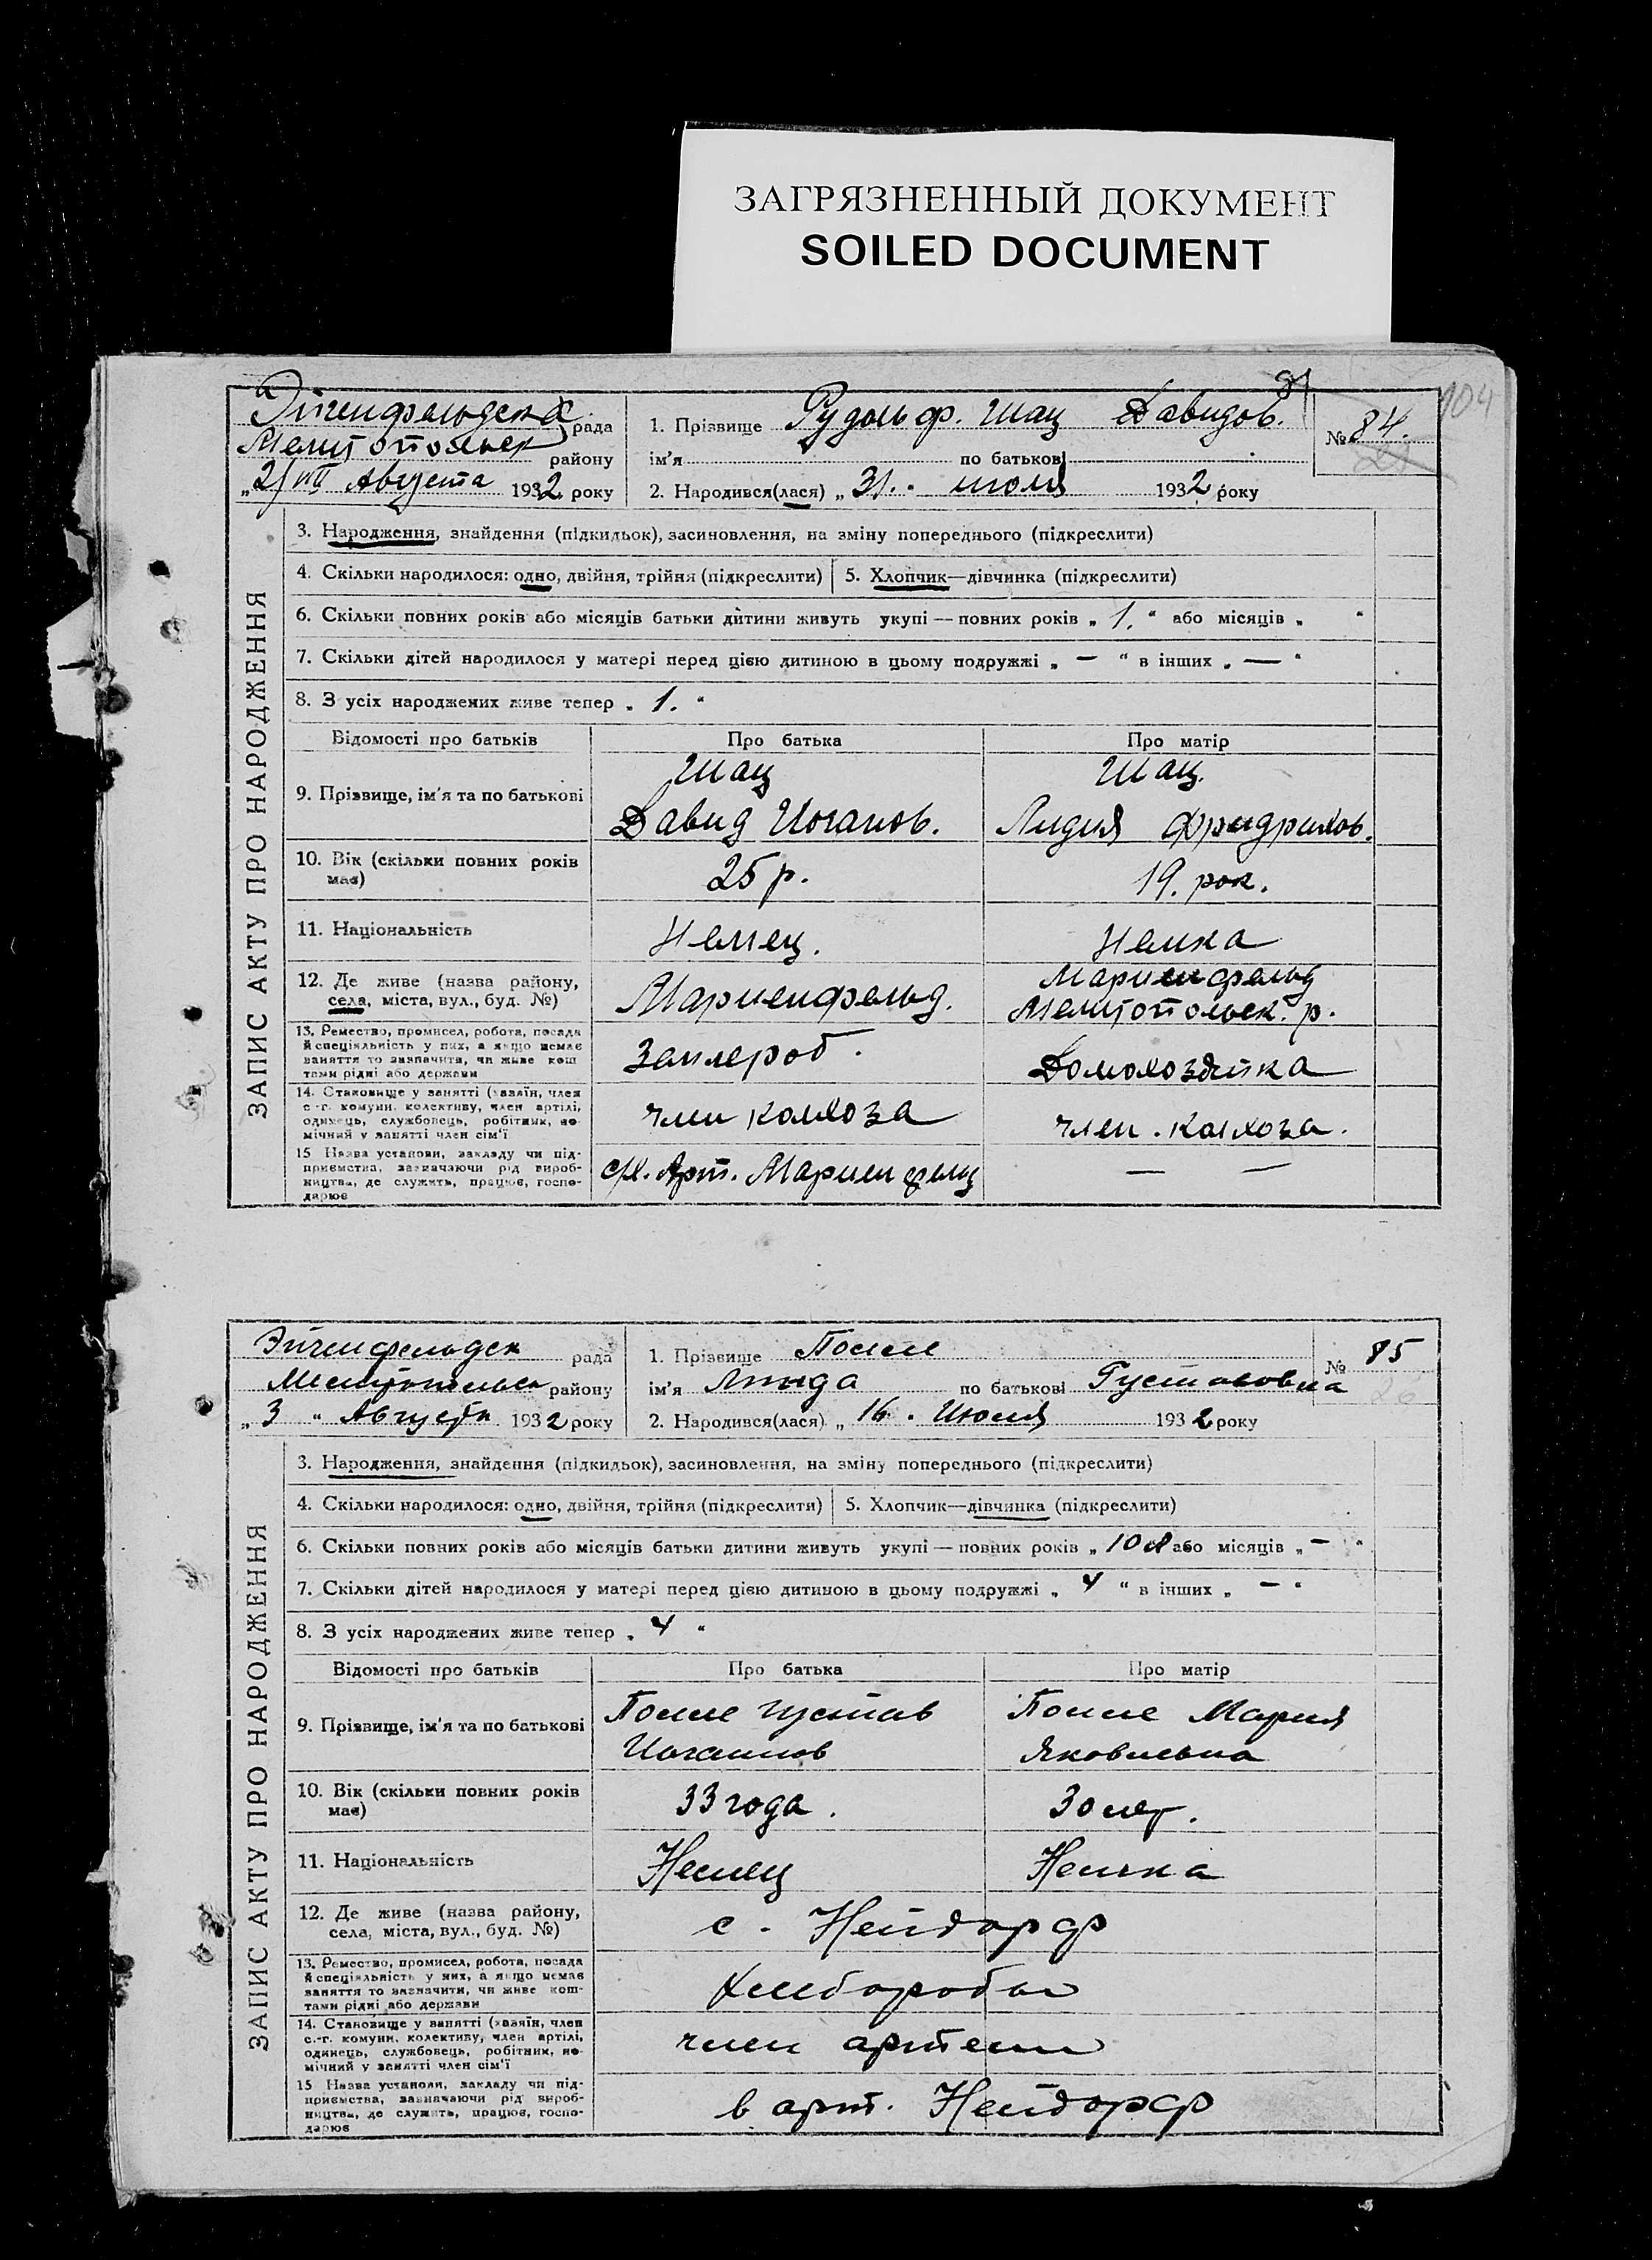 ЗАГРЯЗНЕННЫЙ ДОКУМЕНТ
SOILED DOCUMENT
104
Эйгенфельдская рада
Мелитопольск району
"2/VIII Августа 1932 року
1. Прізвище Рудольф. Шац Давидов.
ім'я по батькові
2. Народився(лася) „ 31. " июля 1932 року
№ 84.
ЗАПИС АКТУ ПРО НАРОДЖЕННЯ
3. Народження, знайдення (підкидьок), засиновлення, на зміну попереднього (підкреслити)
4. Скільки народилося: одно, двійня, трійня (підкреслити) 5. Хлопчик—дівчинка (підкреслити)
6. Скільки повних років або місяців батьки дитини живуть укупі — повних років „ 1. " або місяців „ "
7. Скільки дітей народилося у матері перед цією дитиною в цьому подружжі „ — " в інших „ — "
8. З усіх народжених живе тепер „ 1. "
Відомості про батьків Про батька Про матір
9. Прізвище, ім'я та по батькові
Шац
Давид Иоганов.
Шац.
Лидия Фридрихов.
10. Вік (скільки повних років має)
25 р.
19. рок.
11. Національність
Немец.
Немка
12. Де живе (назва району,
села, міста, вул., буд. №)
Мариенфельд.
Мариенфельд
Мелитопольск. р.
13. Ремество, промисел, робота, посада
й спеціяльність у них, а якщо немає
заняття то зазначити, чи живе кош
тами рідні або держави
Землероб.
Домохозяйка
14. Становище у занятті (хазяїн, член
с.-г. комуни, колективу, член артілі,
одинець, службовець, робітник, по-
мічний у занятті член сім'ї
член колхоза
член. колхоза.
15 Назва установи, закладу чи під-
приємства, зазначаючи рід вироб-
ництва, де служить, працює, госпо-
дарює
Арт. Мариен
— —
Эйгенфельдск рада
Мелитопольск району
„ 3 " Августа 1932 року
1. Прізвище Полле
ім'я Линда по батькові Густавовна
2. Народився(лася) „ 16. Июля 1932 року
№ 85
26
ЗАПИС АКТУ ПРО НАРОДЖЕННЯ
3. Народження, знайдення (підкидьок), засиновлення, на зміну попереднього (підкреслити)
4. Скільки народилося: одно, двійня, трійня (підкреслити) 5. Хлопчик—дівчинка (підкреслити)
6. Скільки повних років або місяців батьки дитини живуть укупі — повних років „ 10 л або місяців „ — "
7. Скільки дітей народилося у матері перед цією дитиною в цьому подружжі „ 4 " в інших „ — "
8. З усіх народжених живе тепер „ 4 "
Відомості про батьків Про батька Про матір
9. Прізвище, ім'я та по батькові
Полле Густав
Иоганнов
Полле Мария
Яковлевна
10. Вік (скільки повних років має)
33 года.
30 лет.
11. Національність
Немец
Немка
12. Де живе (назва району,
села, міста, вул., буд. №)
с. Нейдорф
13. Ремество, промисел, робота, посада
й спеціяльність у них, а якщо немає
заняття то зазначити, чи живе кош-
тами рідні або держави
Хлебороби
14. Становище у занятті (хазяїн, член
с.-г. комуни, колективу, член артілі,
одинець, службовець, робітник, по-
мічний у занятті член сім'ї
член артели
15 Назва установи, закладу чи під-
приємства, зазначаючи рід вироб-
ництва, де служить, працює, госпо-
дарює
в арт. Нейдорф